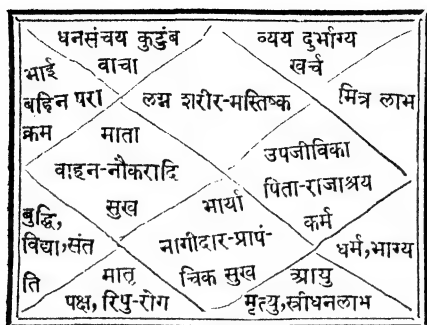 धनसंचय कुटुंब
वाचा
व्यय दुर्भाग्य
खर्च
भाई
बहिन परा
क्रम
लग्न शरीर-मस्तिष्क
मित्र लाभ
माता
वाहन-नौकरादि
सुख
उपजीविका
पिता-राजाश्रय
कर्म
बुद्धि,
विद्या,संत
ति
भार्या
नागीदार-प्रापं-
चिक सुख
धर्म,भाग्य
मातृ
पक्ष, रिपु-रोग
आयु
मृत्यु,स्त्रीधनलाभ